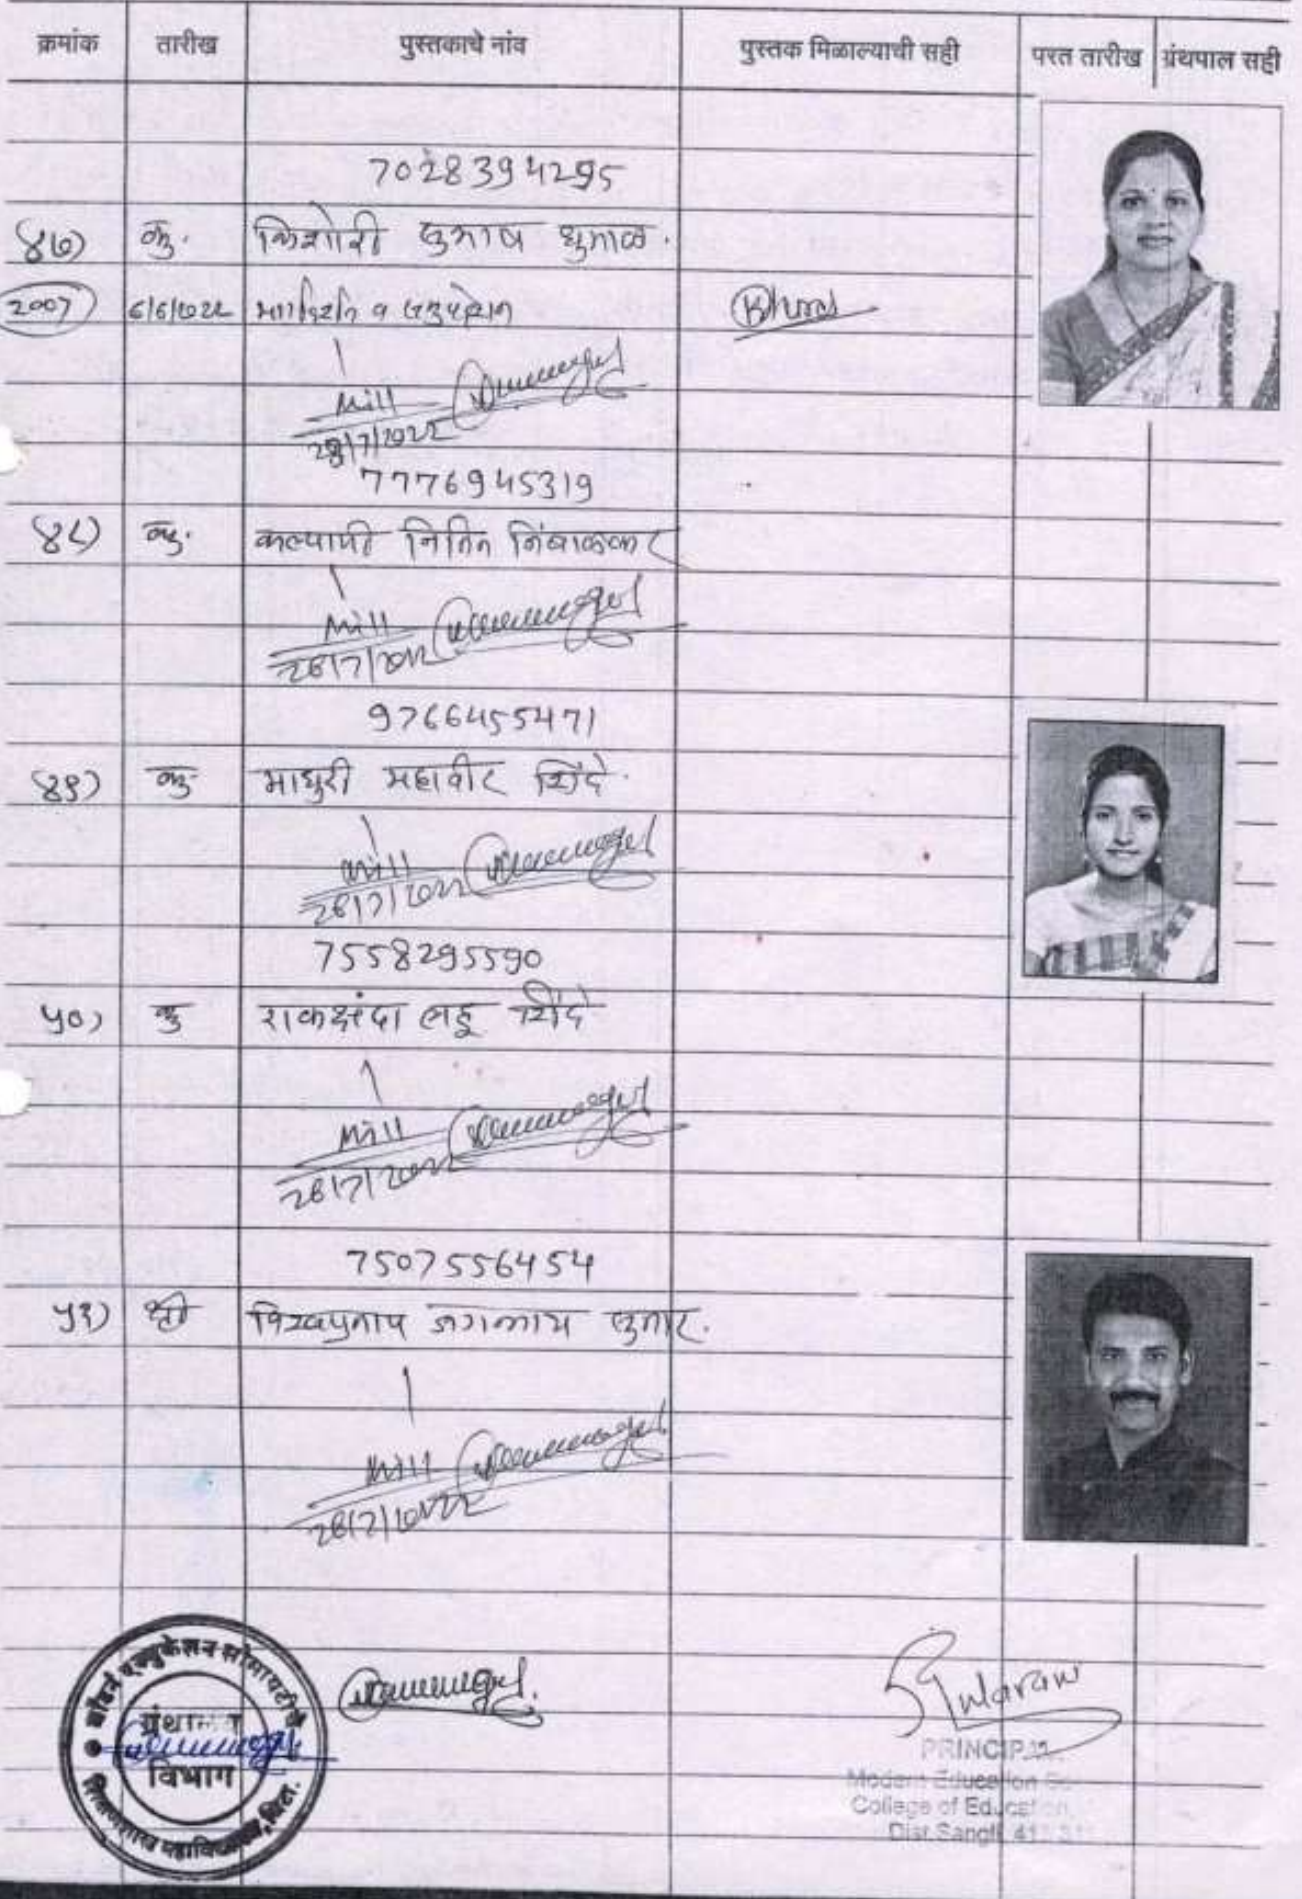 क्रमांक तारीख पुस्तकाचे नांव पुस्तक मिळाल्याची सही परत तारीख ग्रंथपाल सही
7028394295
४७) कु. किशोरी सुभाष धुमाळ.
2007 6/6/2022 मार्गदर्शन व समुपदेशन
Nill
28/7/2022
7776945319
४८) कु. कल्याणी नितीन निंबाळकर
Nill
28/7/2022
9766455471
४९) कु माधुरी महावीर शिंदे.
Nill
28/7/2022
7558295590
५०) कु राकक्षंदा लहू शिंदे
Nill
28/7/2022
7507556454
५१) श्री विश्वप्रताप जगन्नाथ सुतार.
Nill
28/7/2022
मॉडर्न एज्युकेशन सोसायटीचे
ग्रंथालय
विभाग
शिक्षणशास्त्र महाविद्यालय, विटा.
PRINCIPAL
Modern Education
College of Education,
Dist. Sangli